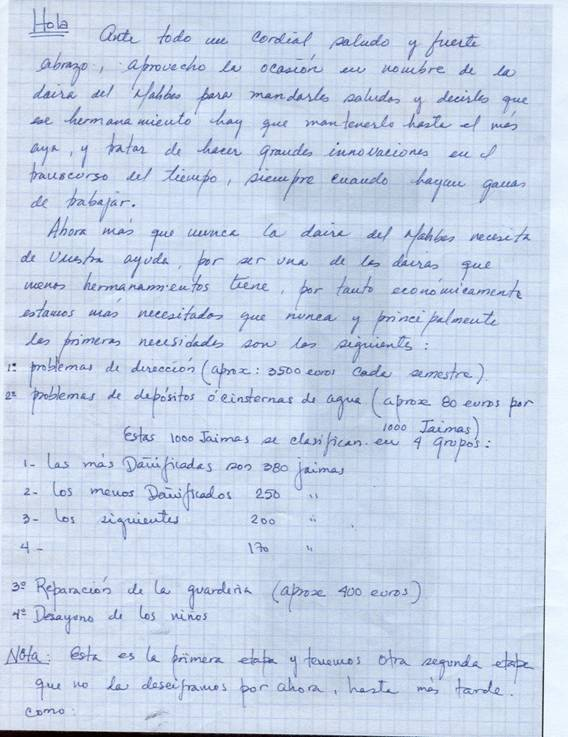 Hola
Ante todo un cordial saludo y fuerte
abrazo, aprovecho la ocasión en nombre de la
daira del Mahbes para mandarles saludos y decirles que
ese hermanamiento hay que mantenerlo hasta el más
aya, y tratar de hacer grandes innovaciones en el
transcurso del tiempo, siempre cuando hayan ganas
de trabajar.
Ahora más que nunca la daira del Mahbes necesita
de vuestra ayuda, por ser una de las dairas que
menos hermanamientos tiene, por tanto económicamente
estamos más necesitados que nunca y principalmente
las primeras necesidades son las siguientes:
1º problemas de dirección (aprox: 3500 euros cada semestre).
2º problemas de depósitos ó cinsternas de agua (aprox 80 euros por
1000 Jaimas)
Estas 1000 Jaimas se clasifican en 4 grupos:
1- Las más Dañificadas son 380 jaimas
2- Los menos Dañificados 250 "
3- Los siguientes 200 " .
4- 170 "
3º Reparación de la guardería (aprox 400 euros)
4º Desayono de los niños
Nota: Esta es la primera etapa y tenemos otra segunda etapa
que no la desciframos por ahora, hasta más tarde.
como: